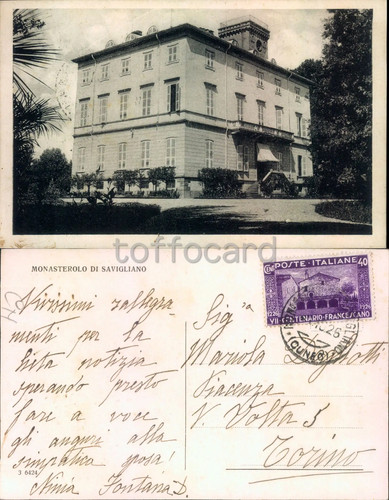 toffocard
MONASTEROLO DI SAVIGLIANO
Vivissimi rallegra
menti per la
lieta notizia
sperando presto
fare a voce
gli auguri alla
simpatica sposa!
Ninia Fontana D.
3 6424
POSTE ITALIANE 40
CEN
1226 1926
VII CENTENARIO FRANCESCANO
(CUNEO)
Sig.na
Mariola
Piacenza
V. Volta 5
Torino